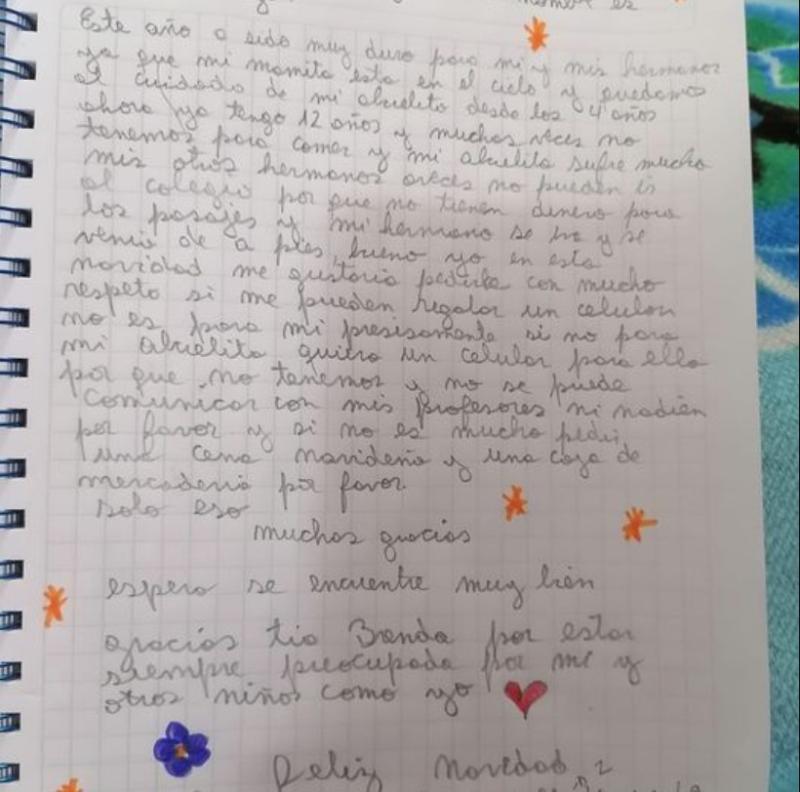 es
Este año a sido muy duro para mi y mis hermanos
ya que mi mamita esta en el cielo y quedamos
al cuidado de mi abuelito desde los 4 años
ahora yo tengo 12 años y muchas veces no
tenemos para comer y mi abuelita sufre mucho
mis otros hermanos aveces no pueden ir
al colegio por que no tienen dinero para
los pasajes y mi hermano se va y se
venia de a pies, bueno yo en esta
navidad me gustaria pedirle con mucho
respeto si me pueden regalar un celular
no es para mi presisamente si no para
mi abuelita quiero un celular para ella
por que no tenemos y no se puede
comunicar con mis profesores ni nadien
por favor y si no es mucho pedir
una cena navideña y una caja de
mercaderia por favor.
solo eso
muchas gracias
espero se encuentre muy bien
gracias tia Brenda por estar
siempre preocupada por mi y
otros niños como yo
Feliz navidad